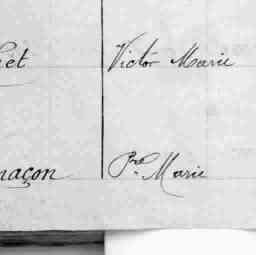 het Victor Marie
maçon Pre Marie